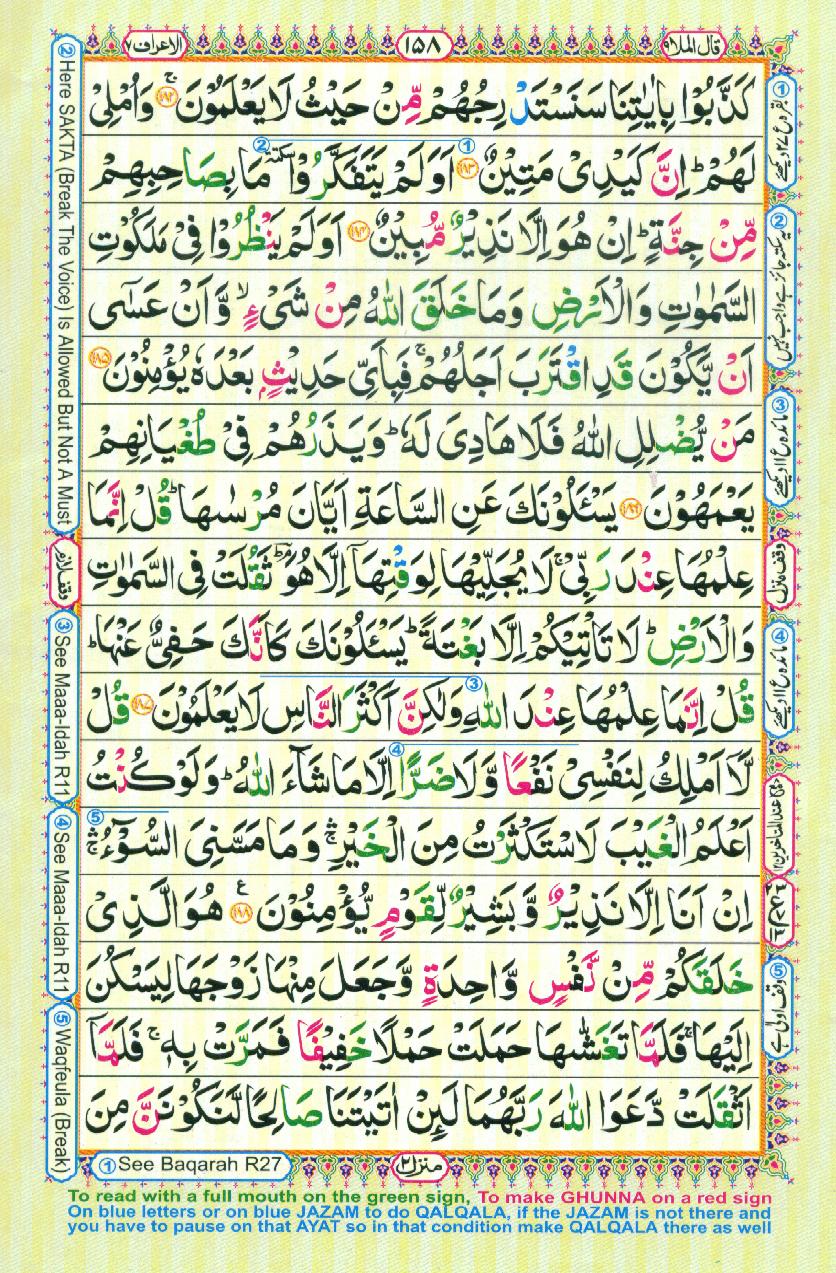 قال الملا ٩
١٥٨
الاعراف ٧
كَذَّبُوْا بِاٰيٰتِنَا سَنَسْتَدْرِجُهُمْ مِّنْ حَيْثُ لَا يَعْلَمُوْنَ ۚ‏﴿۱۸۲﴾ وَاُمْلِىْ
لَهُمْ ؕ اِنَّ كَيْدِىْ مَتِيْنٌ ﴿۱۸۳﴾ اَوَلَمْ يَتَفَكَّرُوْا سكتة مَا بِصَاحِبِهِمْ
مِّنْ جِنَّةٍ ؕ اِنْ هُوَ اِلَّا نَذِيْرٌ مُّبِيْنٌ ﴿۱۸۴﴾ اَوَلَمْ يَنْظُرُوْا فِىْ مَلَكُوْتِ
السَّمٰوٰتِ وَالْاَرْضِ وَمَا خَلَقَ اللّٰهُ مِنْ شَىْءٍ ۙ وَّاَنْ عَسٰٓى
اَنْ يَّكُوْنَ قَدِ اقْتَرَبَ اَجَلُهُمْ ۚ فَبِاَىِّ حَدِيْثٍۢ بَعْدَهٗ يُؤْمِنُوْنَ ﴿۱۸۵﴾
مَنْ يُّضْلِلِ اللّٰهُ فَلَا هَادِىَ لَهٗ ؕ وَيَذَرُهُمْ فِىْ طُغْيَانِهِمْ
يَعْمَهُوْنَ ﴿۱۸۶﴾ يَسْئَلُوْنَكَ عَنِ السَّاعَةِ اَيَّانَ مُرْسٰٮهَا ؕ قُلْ اِنَّمَا
عِلْمُهَا عِنْدَ رَبِّىْ ۚ لَا يُجَلِّيْهَا لِوَقْتِهَاۤ اِلَّا هُوَ ؔۘؕ ثَقُلَتْ فِى السَّمٰوٰتِ
وَالْاَرْضِ ؕ لَا تَاْتِيْكُمْ اِلَّا بَغْتَةً ؕ يَسْئَلُوْنَكَ كَاَنَّكَ حَفِىٌّ عَنْهَا ؕ
قُلْ اِنَّمَا عِلْمُهَا عِنْدَ اللّٰهِ وَلٰكِنَّ اَكْثَرَ النَّاسِ لَا يَعْلَمُوْنَ ﴿۱۸۷﴾ قُلْ
لَّاۤ اَمْلِكُ لِنَفْسِىْ نَفْعًا وَّلَا ضَرًّا اِلَّا مَا شَآءَ اللّٰهُ ؕ وَلَوْ كُنْتُ
اَعْلَمُ الْغَيْبَ لَاسْتَكْثَرْتُ مِنَ الْخَيْرِ ۛۚ وَمَا مَسَّنِىَ السُّوْٓءُ ۛۚ
اِنْ اَنَا اِلَّا نَذِيْرٌ وَّبَشِيْرٌ لِّقَوْمٍ يُّؤْمِنُوْنَ ﴿۱۸۸﴾ هُوَ الَّذِىْ
خَلَقَكُمْ مِّنْ نَّفْسٍ وَّاحِدَةٍ وَّجَعَلَ مِنْهَا زَوْجَهَا لِيَسْكُنَ
اِلَيْهَا ۚ فَلَمَّا تَغَشّٰٮهَا حَمَلَتْ حَمْلًا خَفِيْفًا فَمَرَّتْ بِهٖ ۚ فَلَمَّاۤ
اَثْقَلَتْ دَّعَوَا اللّٰهَ رَبَّهُمَا لَئِنْ اٰتَيْتَنَا صَالِحًا لَّنَكُوْنَنَّ مِنَ
② Here SAKTA (Break The Voice) Is Allowed But Not A Must
وقف لازم
③ See Maaa-Idah R11
④ See Maaa-Idah R11
⑤ Waqfeula (Break)
① See Baqarah R27
منزل ٢
To read with a full mouth on the green sign, To make GHUNNA on a red sign
On blue letters or on blue JAZAM to do QALQALA, if the JAZAM is not there and
you have to pause on that AYAT so in that condition make QALQALA there as well